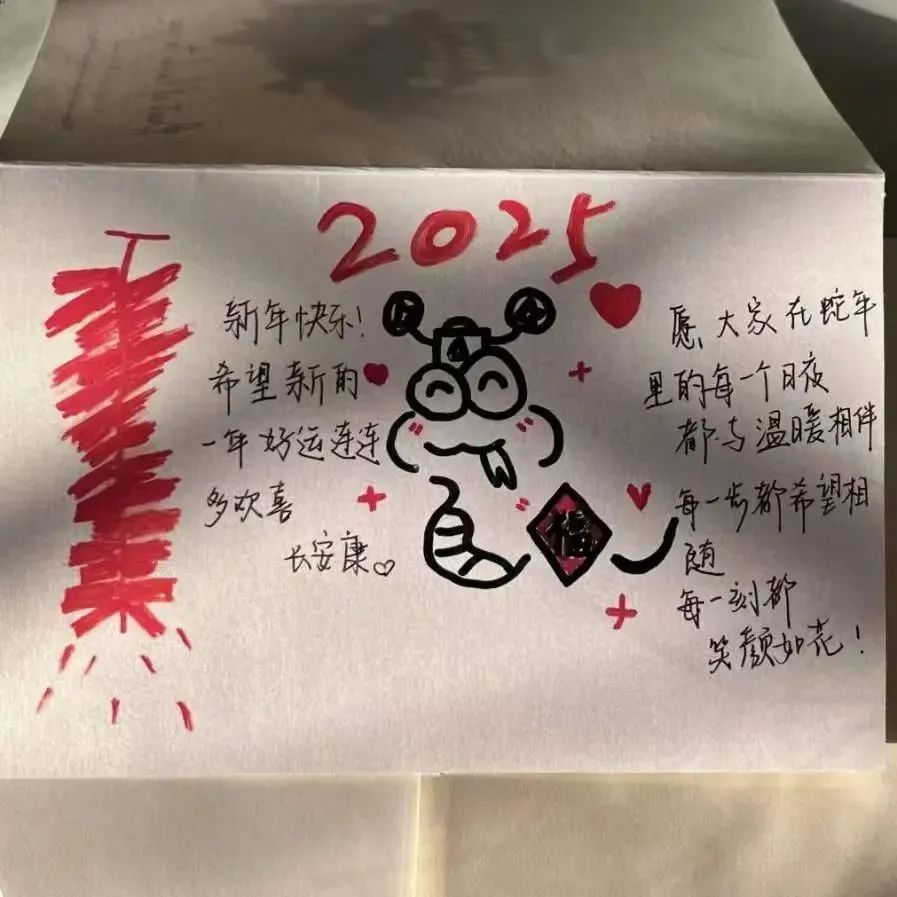 2025
新年快乐！
希望新的
一年好运连连
多欢喜
长安康
福
愿大家在蛇年
里的每一个日夜
都与温暖相伴
每一步都希望相
随
每一刻都
笑颜如花！